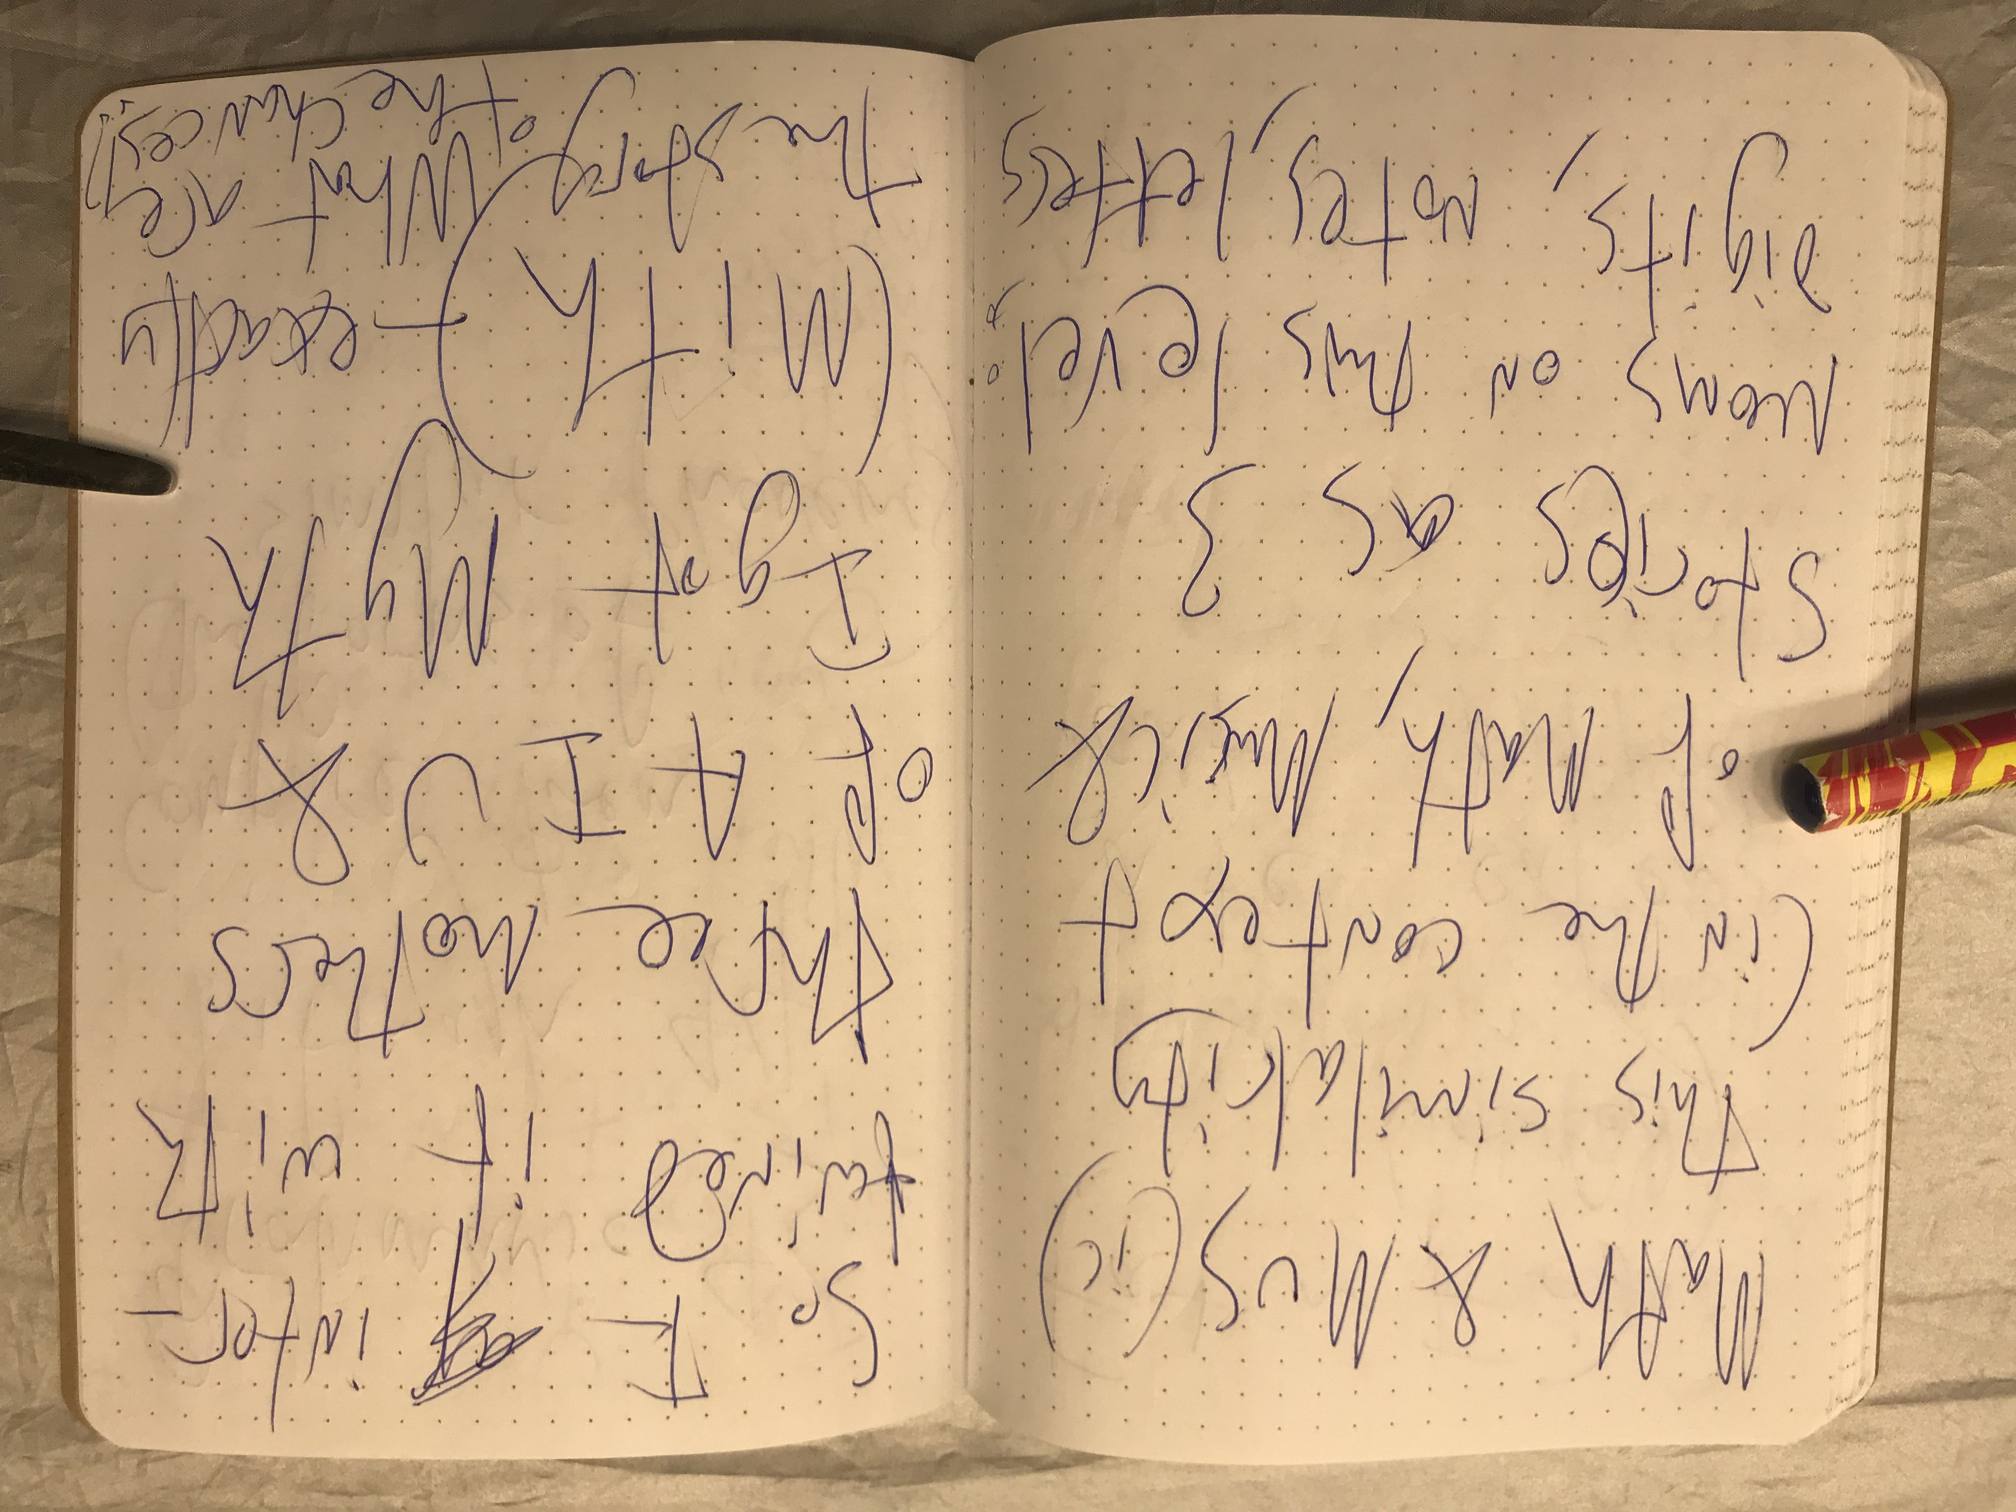 Math & Mus(ic)
This similarity
(in the context
of Math, Music &
Stories as 3
on this level:
Digits, notes, letters
So I inter-
twined it with
three mothers
of A I U &
I got Myth
(Mith) - exactly
the story What are
of the chances?!